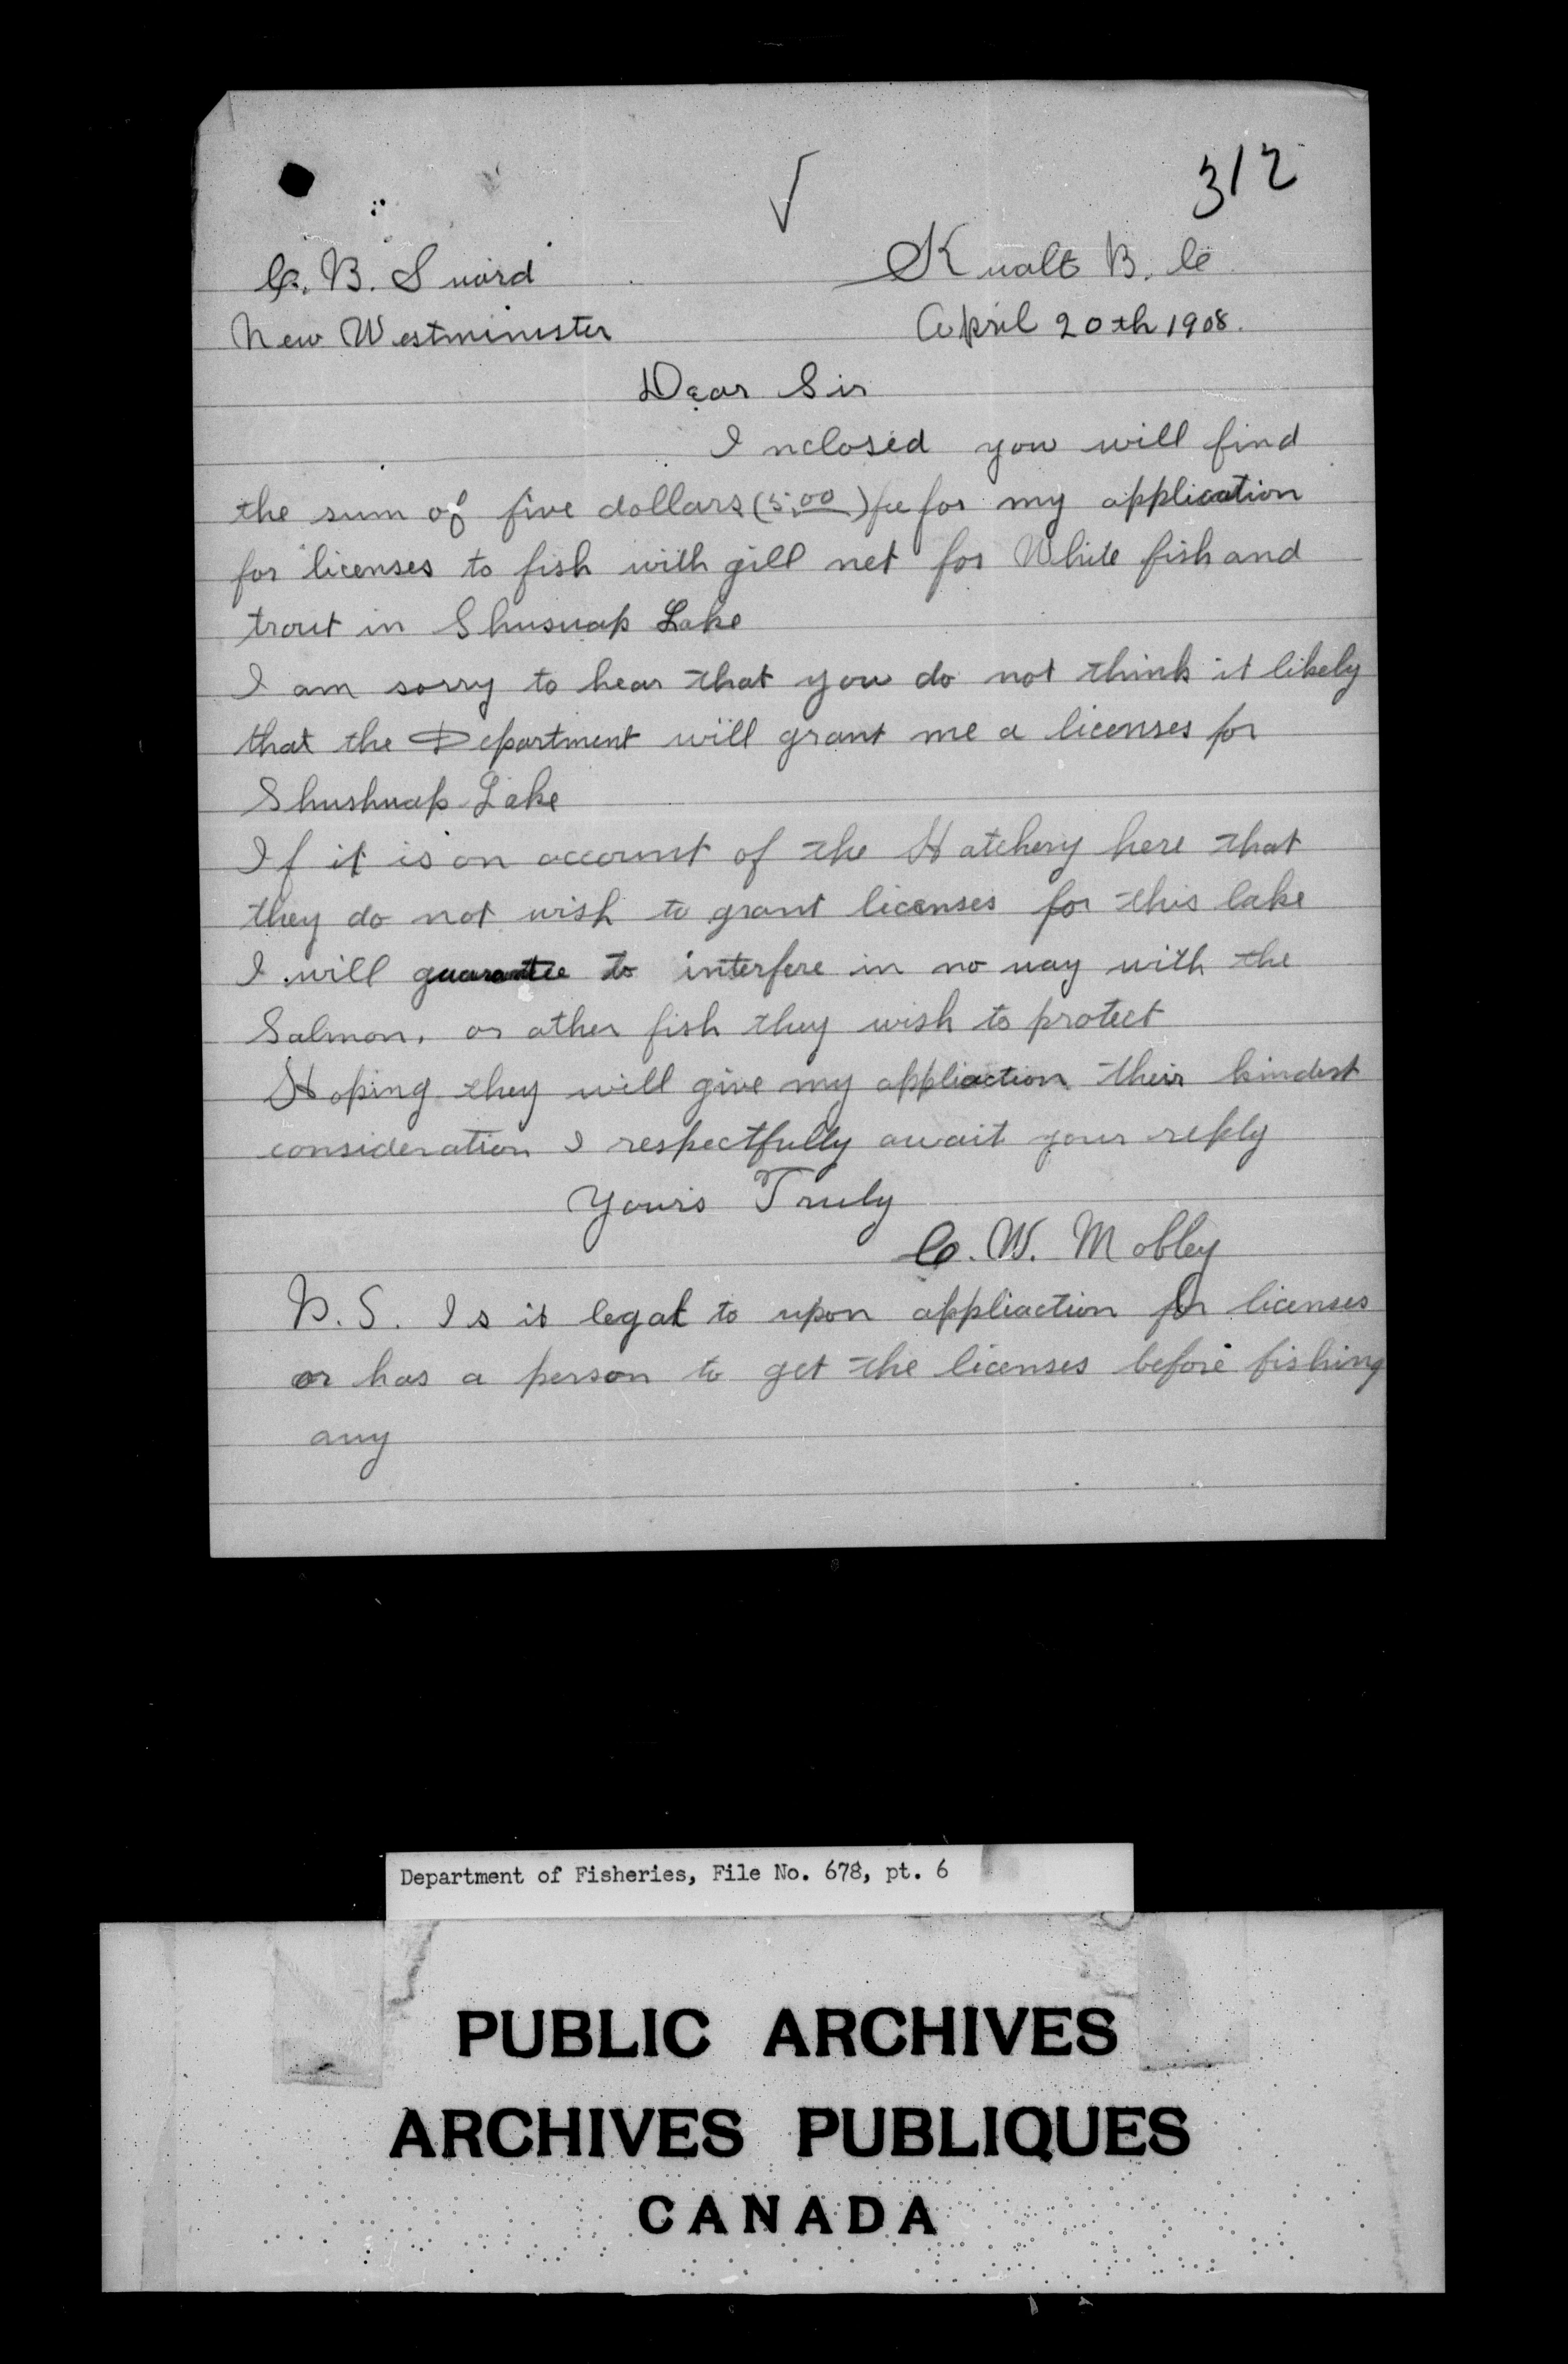 312
C. B. Sword
Kualt B. C
New Westminister
April 20th 1908.
Dear Sir
Inclosed you will find
the sum of five dollars (5.00) fee for my application
for licenses to fish with gill net for White fish and
trout in Shuswap Lake
I am sorry to hear that you do not think it likely
that the Department will grant me a licenses for
Shushwap Lake
If it is on account of the Hatchery here that
they do not wish to grant licenses for this lake
I will guarantee to interfere in no way with the
Salmon, or other fish they wish to protect
Hoping they will give my appliaction their kindest
consideration I respectfully await your reply
Yours Truly
C. W. Mobley
P.S. Is it legal to upon appliaction for licenses
or has a person to get the licenses before fishing
any
Department of Fisheries, File No. 678, pt. 6
PUBLIC ARCHIVES
ARCHIVES PUBLIQUES
CANADA